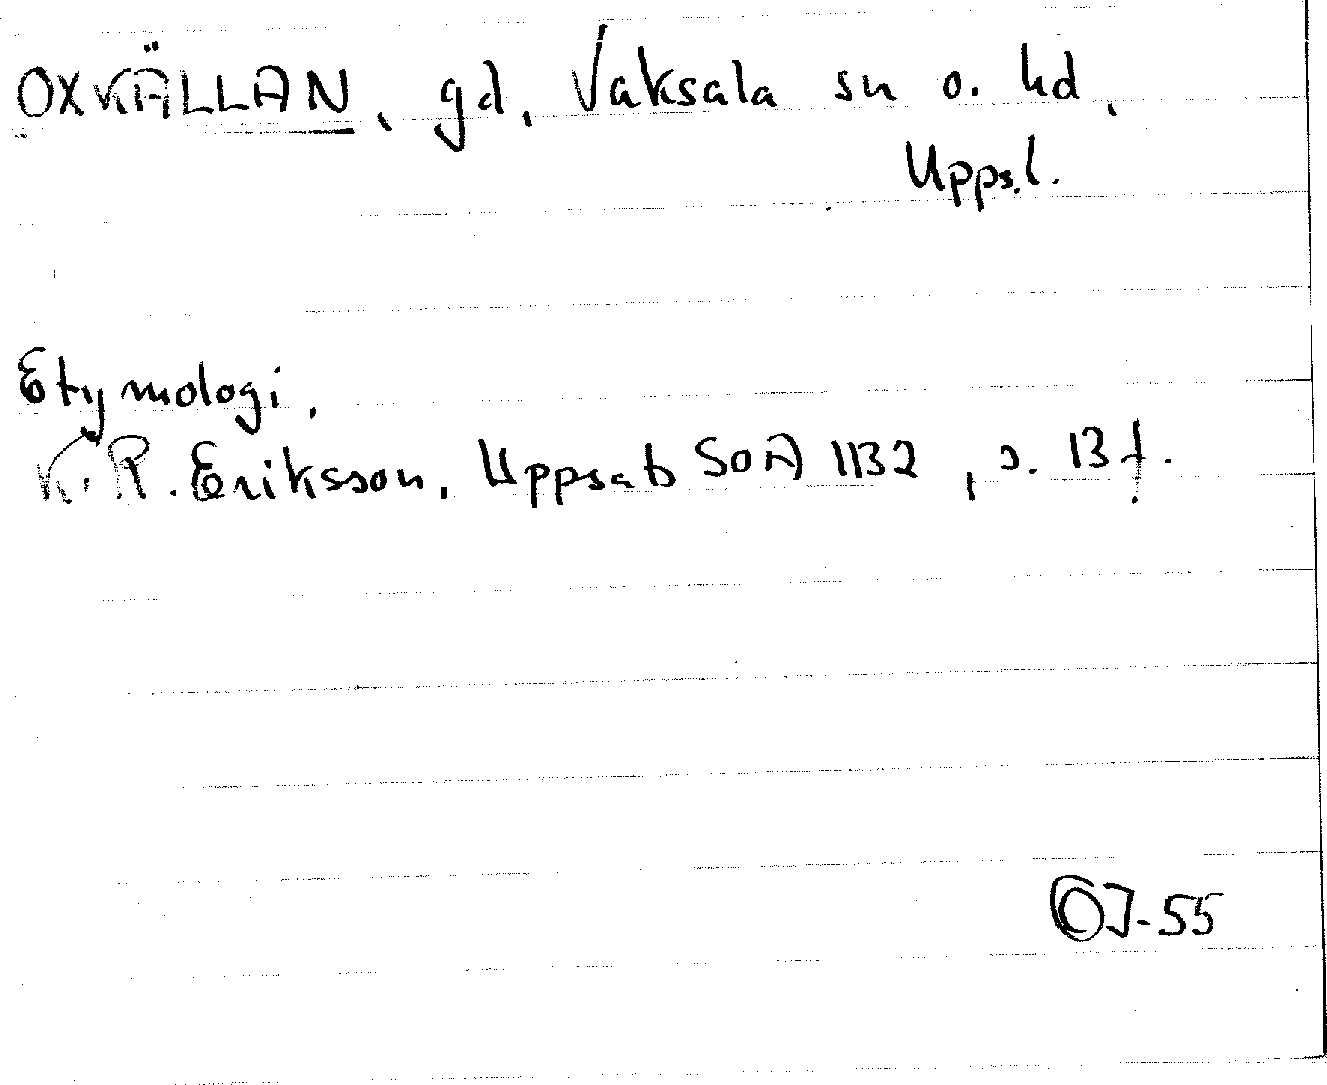 OXKÄLLAN, gd, Vaksala sn o. hd,
Uppsl.
Etymologi.
K. R. Eriksson, Uppsats SOA 1132, s. 13 f.
OJ-55